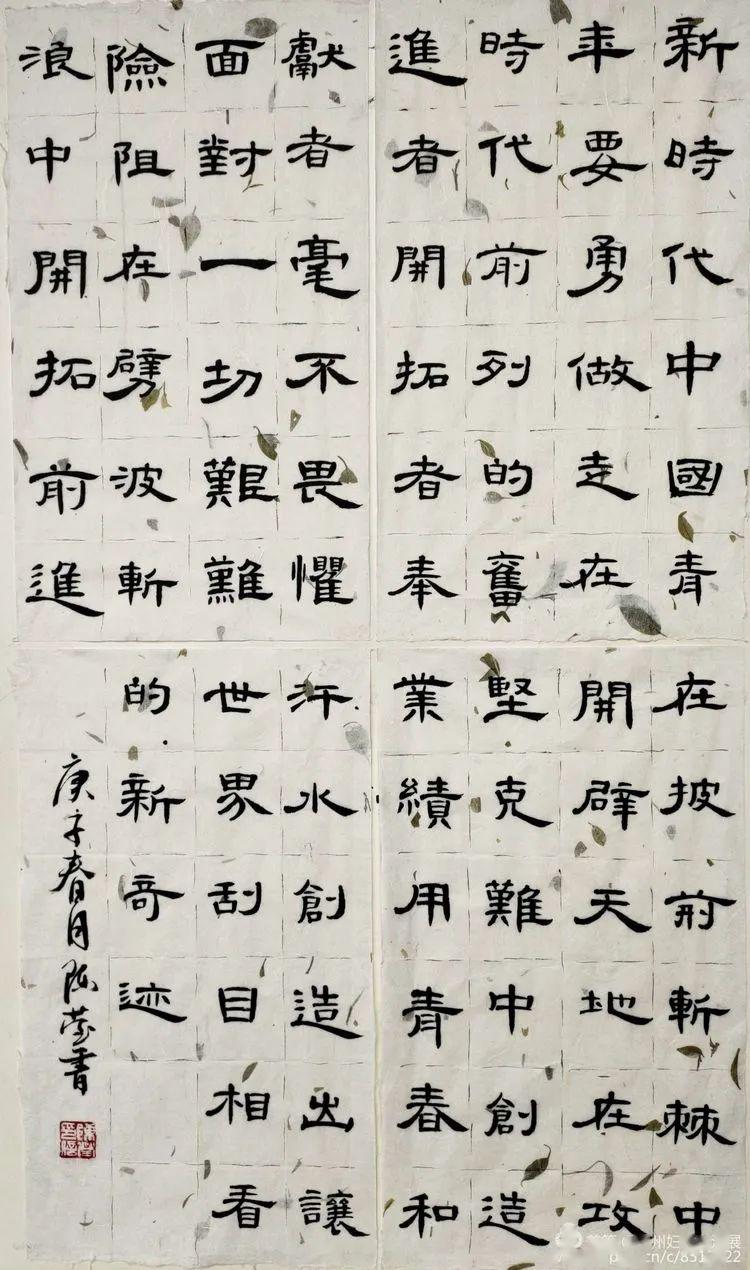 新時代中國青
年要勇做走在
時代前列的奮
進者開拓者奉
獻者毫不畏懼
面對一切艱難
險阻在劈波斬
浪中開拓前進
在披荊斬棘中
開辟天地在攻
堅克難中創造
業績用青春和
汗水創造出讓
世界刮目相看
的新奇迹
庚子春月陈莹書